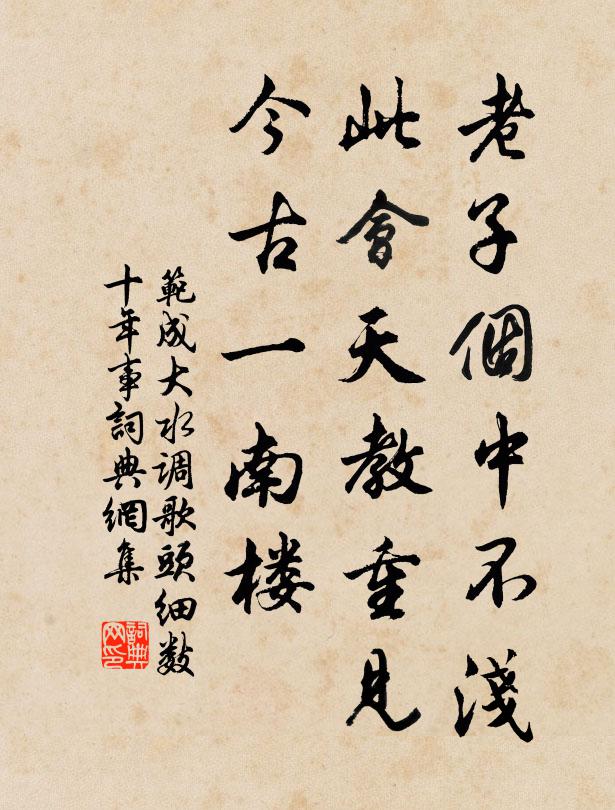 老子個中不淺
此會天教重見
今古一南楼
範成大水调歌頭细数
十年事詞典網集
詞典网印